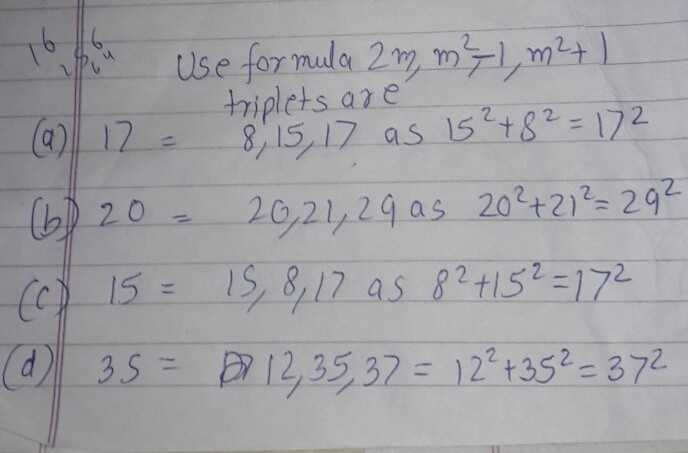 Use formula 2m, m²-1, m²+1
triplets are
(a) 17 = 8,15,17 as 15²+8²=17²
(b) 20 = 20,21,29 as 20²+21²=29²
(c) 15 = 15,8,17 as 8²+15²=17²
(d) 35 = 12,35,37 = 12²+35²=372